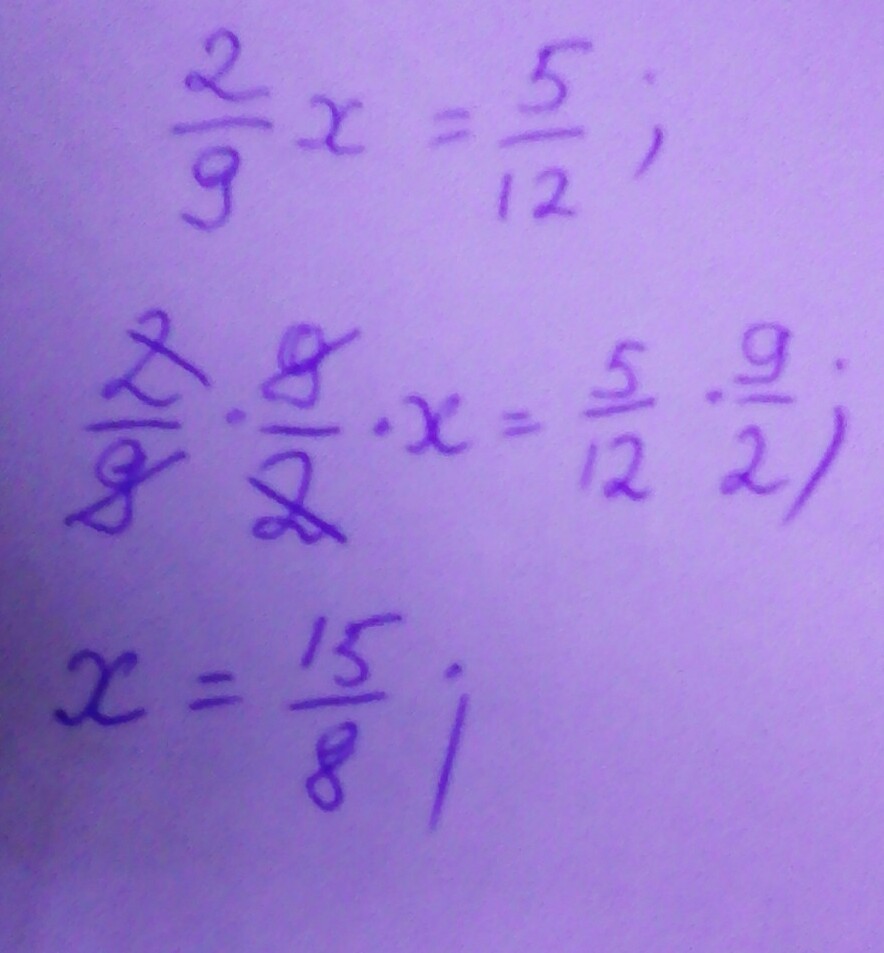 2/9 x = 5/12 ;
2/9 · 9/2 · x = 5/12 · 9/2 ;
x = 15/8 ;